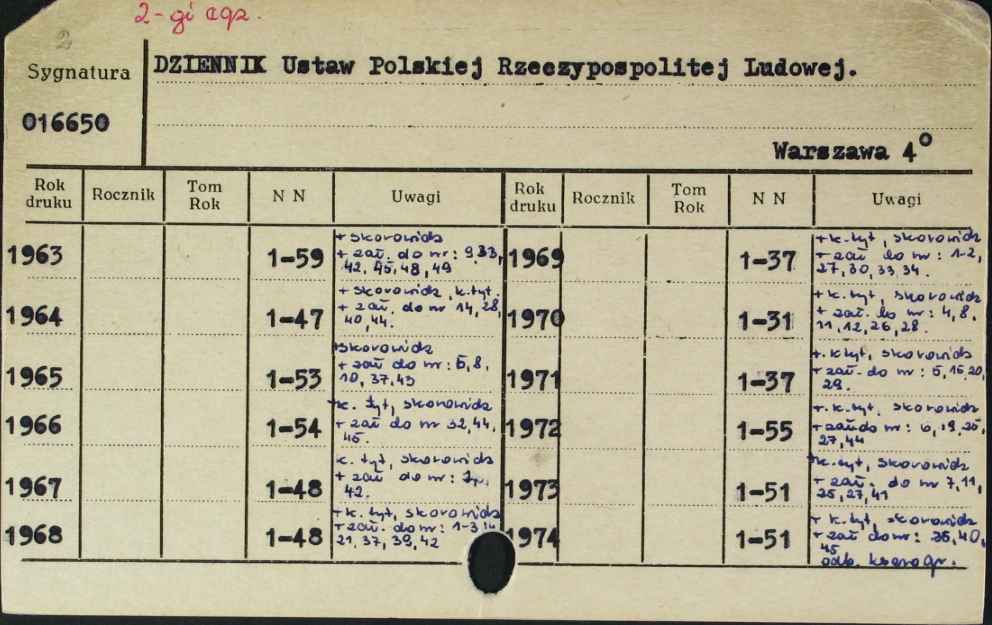 2-gi egz.
2
Sygnatura
DZIENNIK Ustaw Polskiej Rzeczypospolitej Ludowej.
016650
Warszawa 4°
Rok druku Rocznik Tom Rok N N Uwagi Rok druku Rocznik Tom Rok N N Uwagi
1963 1-59
+ skorowidz
+ zał. do nr: 9,33,
42, 45, 48, 49
1964 1-47
+ skorowidz, k.tyt.
+ zał. do nr 14, 28,
40, 44.
1965 1-53
+skorowidz
+ zał do nr: 5, 8,
10, 37, 43
1966 1-54
+k. tyt, skorowidz
+ zał do nr 32, 44,
45.
1967 1-48
k. tyt, skorowidz
+ zał do nr:
42.
1968 1-48
+ k. tyt, skorowidz
+ zał. do nr: 1-3, 14
21, 37, 39, 42
1969 1-37
+ k. tyt, skorowidz
+ zał do nr: 1-2,
27, 30, 33, 34.
1970 1-31
+ k. tyt, skorowidz
+ zał. do nr: 4, 8,
11, 12, 26, 28.
1971 1-37
+. k.tyt, skorowidz
+ zał. do nr: 5, 16, 20,
29.
1972 1-55
+. k. tyt, skorowidz
+ zał do nr: 6, 19, 25,
27, 44
1973 1-51
+k. tyt, skorowidz
+ zał. do nr 7, 11,
25, 27, 41
1974 1-51
+ k. tyt, skorowidz
+ zał do nr: 35, 40,
45
odb. kserogr.